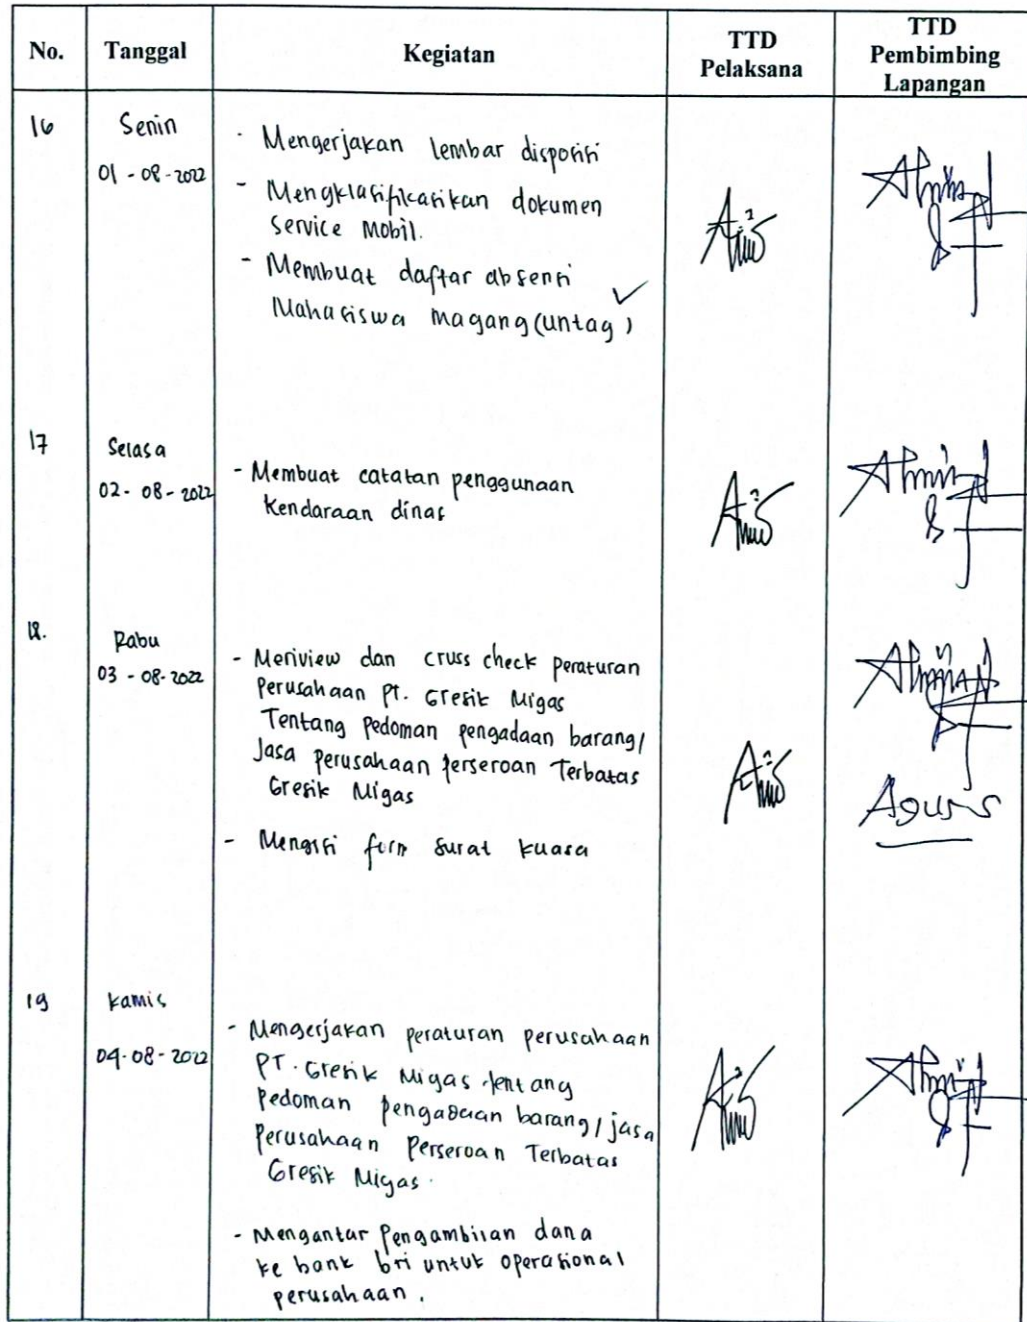 No. Tanggal Kegiatan TTD Pelaksana TTD Pembimbing Lapangan
16 Senin
01 - 08 - 2022
- Mengerjakan lembar disposisi
- Mengklasifikasikan dokumen
service Mobil.
- Membuat daftar absensi
Mahasiswa magang (untag) ✓
17 Selasa
02 - 08 - 2022
- Membuat catatan penggunaan
kendaraan dinas
18. Rabu
03 - 08 - 2022
- Meriview dan cruss check peraturan
perusahaan pt. Gresik Migas
Tentang pedoman pengadaan barang/
Jasa perusahaan perseroan Terbatas
Gresik Migas
- Mengisi form surat kuasa
Agus
19 kamis
04 - 08 - 2022
- Mengerjakan peraturan perusahaan
PT. Gresik Migas tentang
pedoman pengadaan barang/jasa
Perusahaan Perseroan Terbatas
Gresik Migas.
- Mengantar Pengambilan dana
ke bank bri untuk operasional
perusahaan.